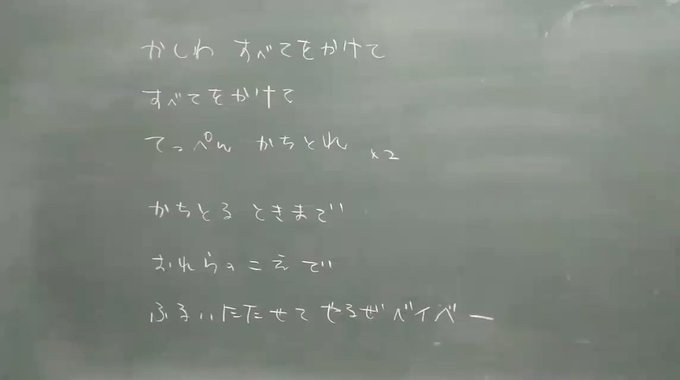 かしわ すべてをかけて
すべてをかけて
てっぺん かちとれ ×2
かちとる ときまで
おれらのこえで
ふるいたたせてやるぜベイベー